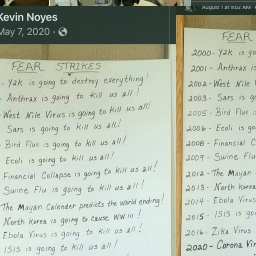 August 1 at 9:02 AM
Kevin Noyes
May 7, 2020 ·
FEAR STRIKES
- Y2K is going to destroy everything!
- Anthrax is going to kill us all!
- West Nile Virus is going to kill us all!
- Sars is going to kill us all!
- Bird Flu is going to kill us all!
- Ecoli is going to kill us all!
Financial Collapse is going to kill us all!
- Swine Flu is going to kill us all!
The Mayan Calender predicts the world ending!
- North Korea is going to cause WW III!
- Ebola Virus is going to kill us all!
- ISIS is going to kill us all!
FEAR
2000- Y2K is go
2001- Anthrax is
2002- West Nile V
2003- Sars is g
2005- Bird Flu is
2006- Ecoli is go
2008- Financial C
2009- Swine Flu
2012- The Mayan
2013- North Korea
2014- Ebola Virus
2015- ISIS is go
2016- Zika Virus
2020- Corona Vir